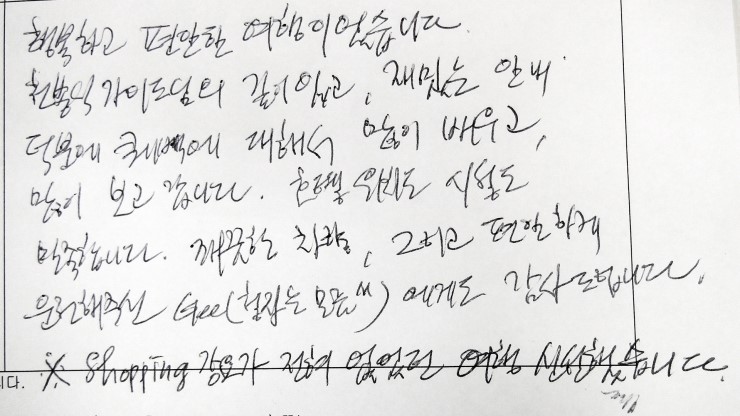 행복하고 편안한 여행이었습니다.
천봉익 가이드님의 깊이있고, 재밌는 안내
덕분에 퀘백에 대해서 많이 배우고,
많이 보고 갑니다. 호텔 위치도 시설도
만족합니다. 깨끗한 차량, 그리고 편안하게
운전해주신 (철자는 모름^^) 에게도 감사드립니다.
니다. ※ Shopping 강요가 전혀 없었던 여행 신선했습니다.